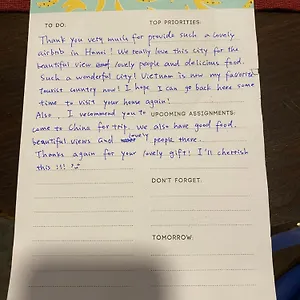 TO DO:
TOP PRIORITIES:
Thank you very much for provide such a lovely
airbnb in Hanoi! We really love this city for the
beautiful view and lovely people and delicious food.
Such a wonderful city! Vietnam is now my favorite
tourist country now! I hope I can go back here some
time to visit your house again!
Also, I recommend you to
UPCOMING ASSIGNMENTS:
come to China for trip. We also have good food,
beautiful views and lovely people there.
Thanks again for your lovely gift! I'll cherish
this !!!
DON'T FORGET:
TOMORROW: